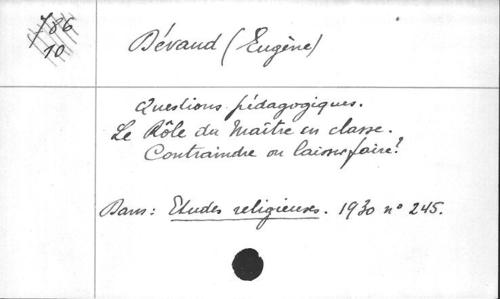 786
10
Dévaud (Eugène)
Questions pédagogiques.
Le Rôle du Maître en classe.
Contraindre ou laisser faire?
Dans: Etudes religieuses. 1930 n° 245.